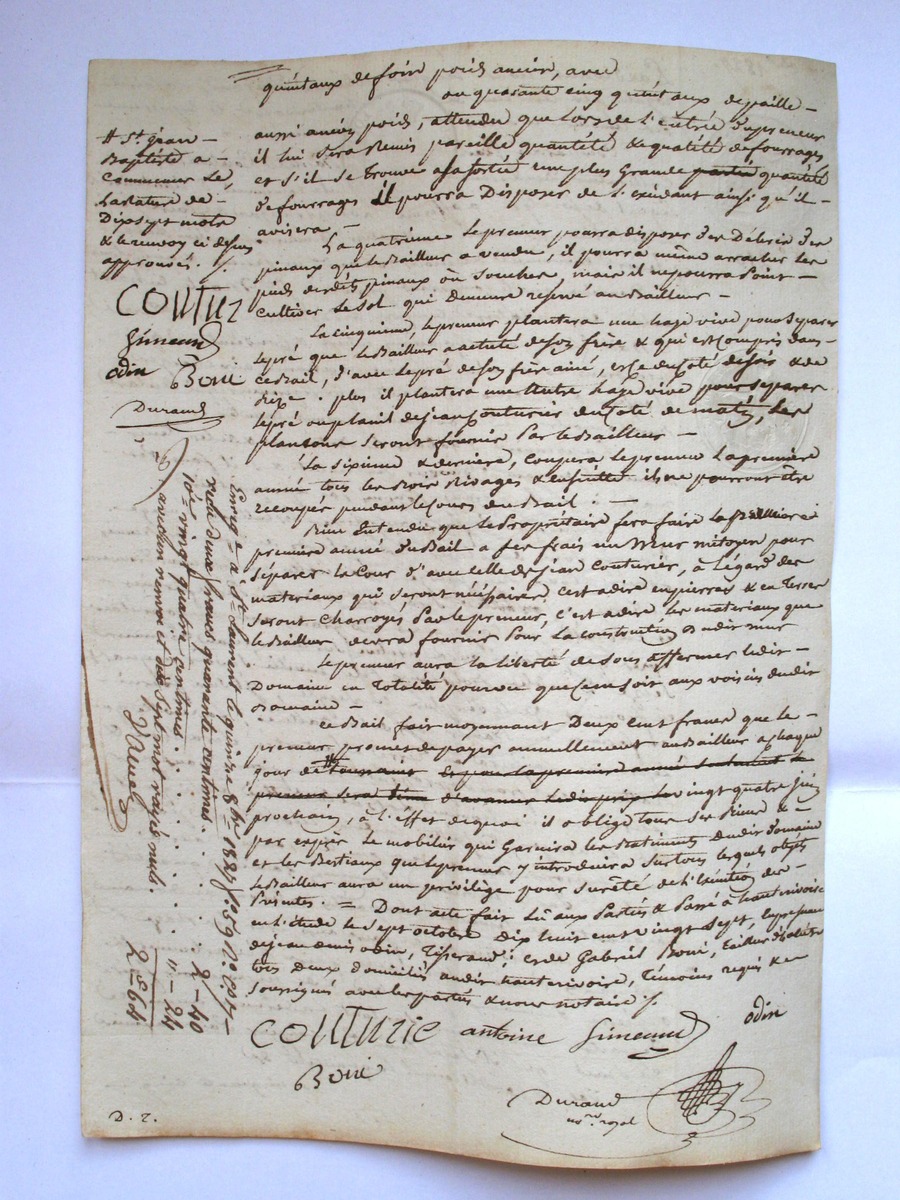 quintaux de foin poids ancien, avec
ou quarante cinq quintaux de paille –
aussi ancien poids, attendu que lors de l'entrée du preneur
il lui sera remis pareille quantité & qualité de fourrages
et s'il se trouve a sa sortie une plus Grande partie quantité
de fourrages il pourra Disposer de l'exédant ainsi qu'il –
avisera –
La quatrieme le preneur pourra disposer des Débris des
pinaux que le Bailleur a vendu, il pourra même arracher les
pieds desdits pinaux ou souches, mais il ne pourra point –
Cultiver le sol qui demeure reservé au Bailleur –
La cinquieme, le preneur plantera une haye vive pour separer
le pré que le Bailleur a acheté de son frère & qui est compris dans
ce Bail, d'avec le pré de son frère ainé, est ce du coté de soir & de
bize . plus il plantera une autre haye vive pour separer
le pré ou plait de jean couturier du coté de matin, les
plansons seront fournis par le Bailleur –
La sixieme & derniere, coupera le preneur la premiere
année tous les Bois Rivages & ensuitte ils ne pourront être
recoupés pendant le cours du Bail . –
Bien Entendu que le Propriétaire fera faire la
première année du Bail a ses frais un mur mitoyen pour
séparer la Cour d'avec celle de jean Couturier, à l'égard des
materiaux qui seront nécessaires c'est adire en pierres & en Terre
seront charroyés par le preneur, c'est adire les materiaux que
le Bailleur devra fournir pour la construction dudit mur
le preneur aura la liberté de sous affermer ledit –
Domaine en totalité pourvu que ce ne soit aux voisins dudit
Domaine –
ce Bail fait moyennant Deux cent francs que le –
preneur promet de payer annuellement au Bailleur a chaque
jour de # Toussaint et pour la premiere année seulement le
preneur sera tenu d'avancer ledit prix le vingt quatre juin
prochain, à l'effet de quoi il oblige tous ses Biens & –
par exprès le mobilier qui Garnira les Batiments dudit domaine
et les Bestiaux que le preneur y introduira sur tous lesquels objets
le Bailleur aura un privilege pour sureté de l'exécution des
Présentes . = Dont acte fait lu aux Parties & Passé à hauterivoire
en l'étude le sept octobre Dix huit cent vingt sept, En présence
de jean denis odin, Tisserand ; et de Gabriel Boni, tailleur d'habits
tous deux domiciliés audit hauterivoire, témoins requis & –
soussignés avec les parties & nous notaire /.
COUTURIE antoine Simeand odin
Boni
Durand
no.re royal
# St. jean –
Baptiste a –
commencer le,
La rature de –
Dix sept mots
& le renvoy ci dessus
approuvés. /.
COUTUR
Simeand
odin Boni
Durand
Enreg.é a St. Laurent le quinze 8.bre 1827 f.o 59
Reçu deux francs quarante centimes . . . 2 – 40
10.e vingt quatre centimes . . . . . . " – 24
2 – 64
avec un renvoi et dix sept mots rayés nuls.
D. 7.